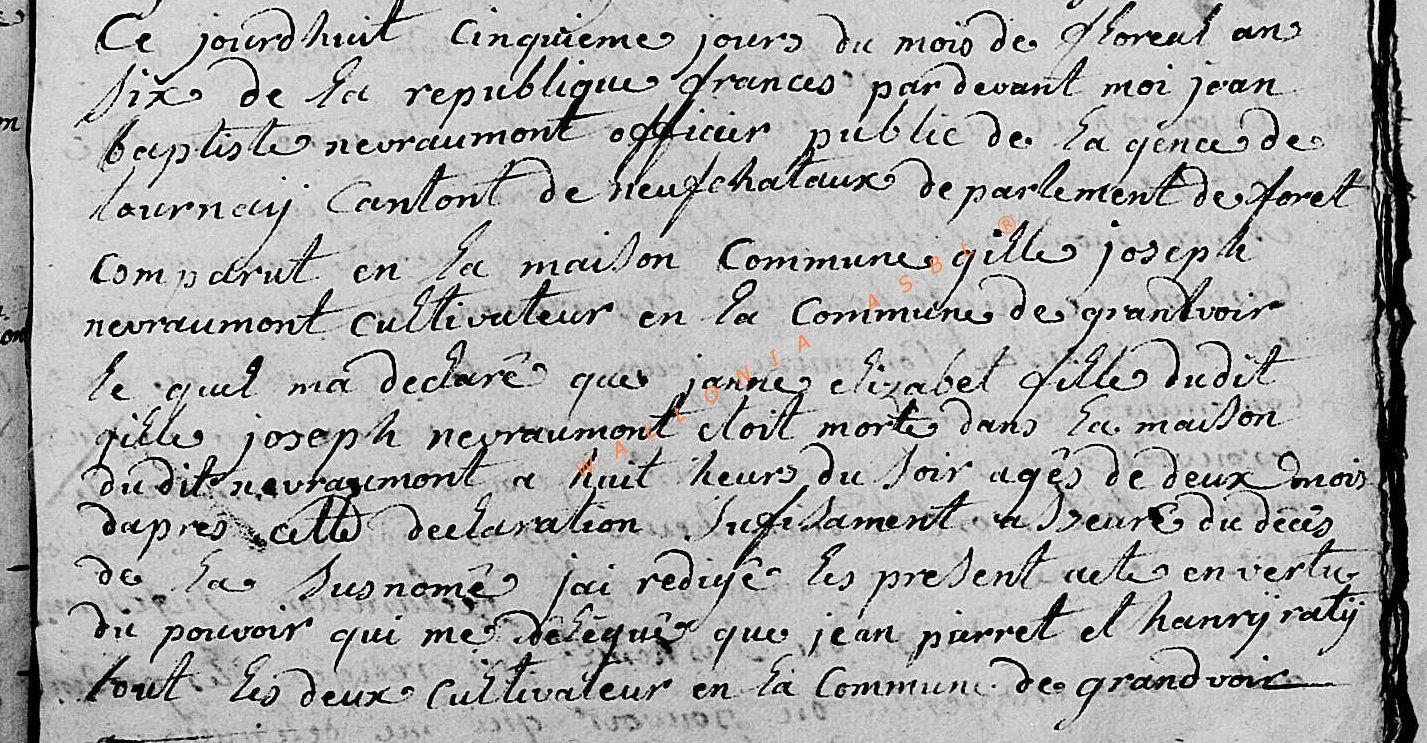 Ce jourdhuit Cinquieme jours du mois de floreal an
six de la republique frances par devant moi jean
baptiste nevraumont officier public de la gence de
tournaij Cantont de neufchataux departement de foret
comparut en la maison Commune gille joseph
nevraumont cultivateur en la Commune de grandvoir
le quel ma declarê que janne elizabet fille du dit
gille joseph nevraumont etoit morte dans la maison
du dit nevraumont a huit heurs du soir agês de deux mois
dapres cette declaration sufisament asseurê du decês
de la susnomê jai redigê les present acte en vertu
du pouvoir qui me dêlêguê que jean pierret et hanrij ratij
tout les deux cultivateur en la Commune de grandvoir
WALLONIA ASBL ®